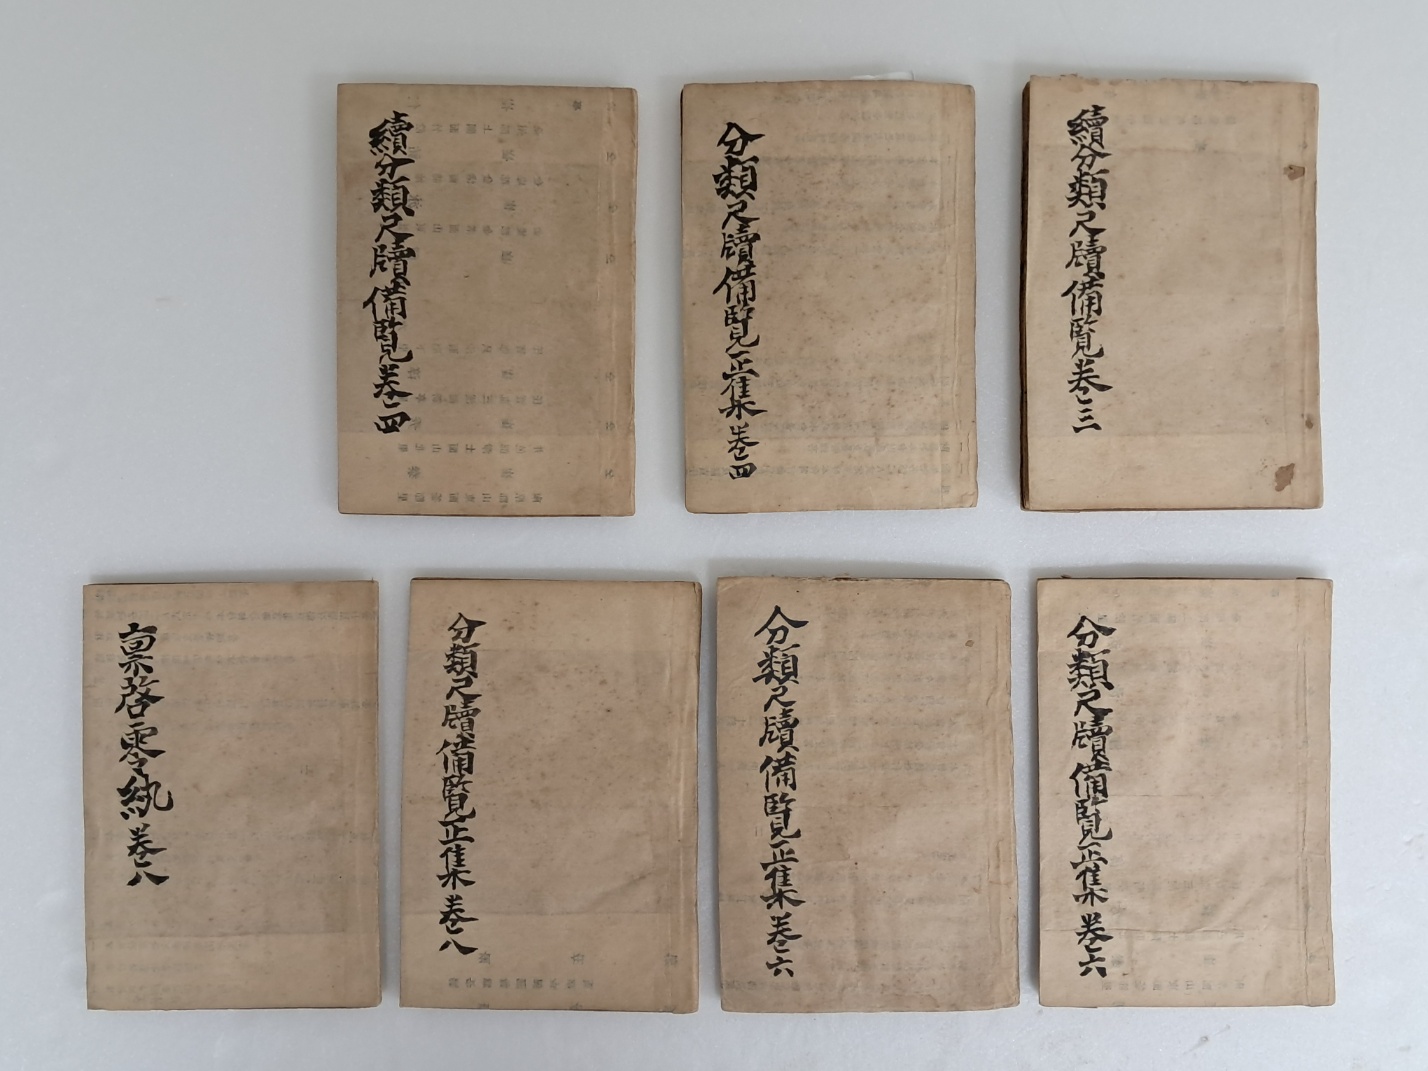 續分類尺牘備覽卷三
分類尺牘備覽正集卷四
續分類尺牘備覽卷四
分類尺牘備覽正集卷六
分類尺牘備覽正集卷六
分類尺牘備覽正集卷八
稟啓零紈卷八